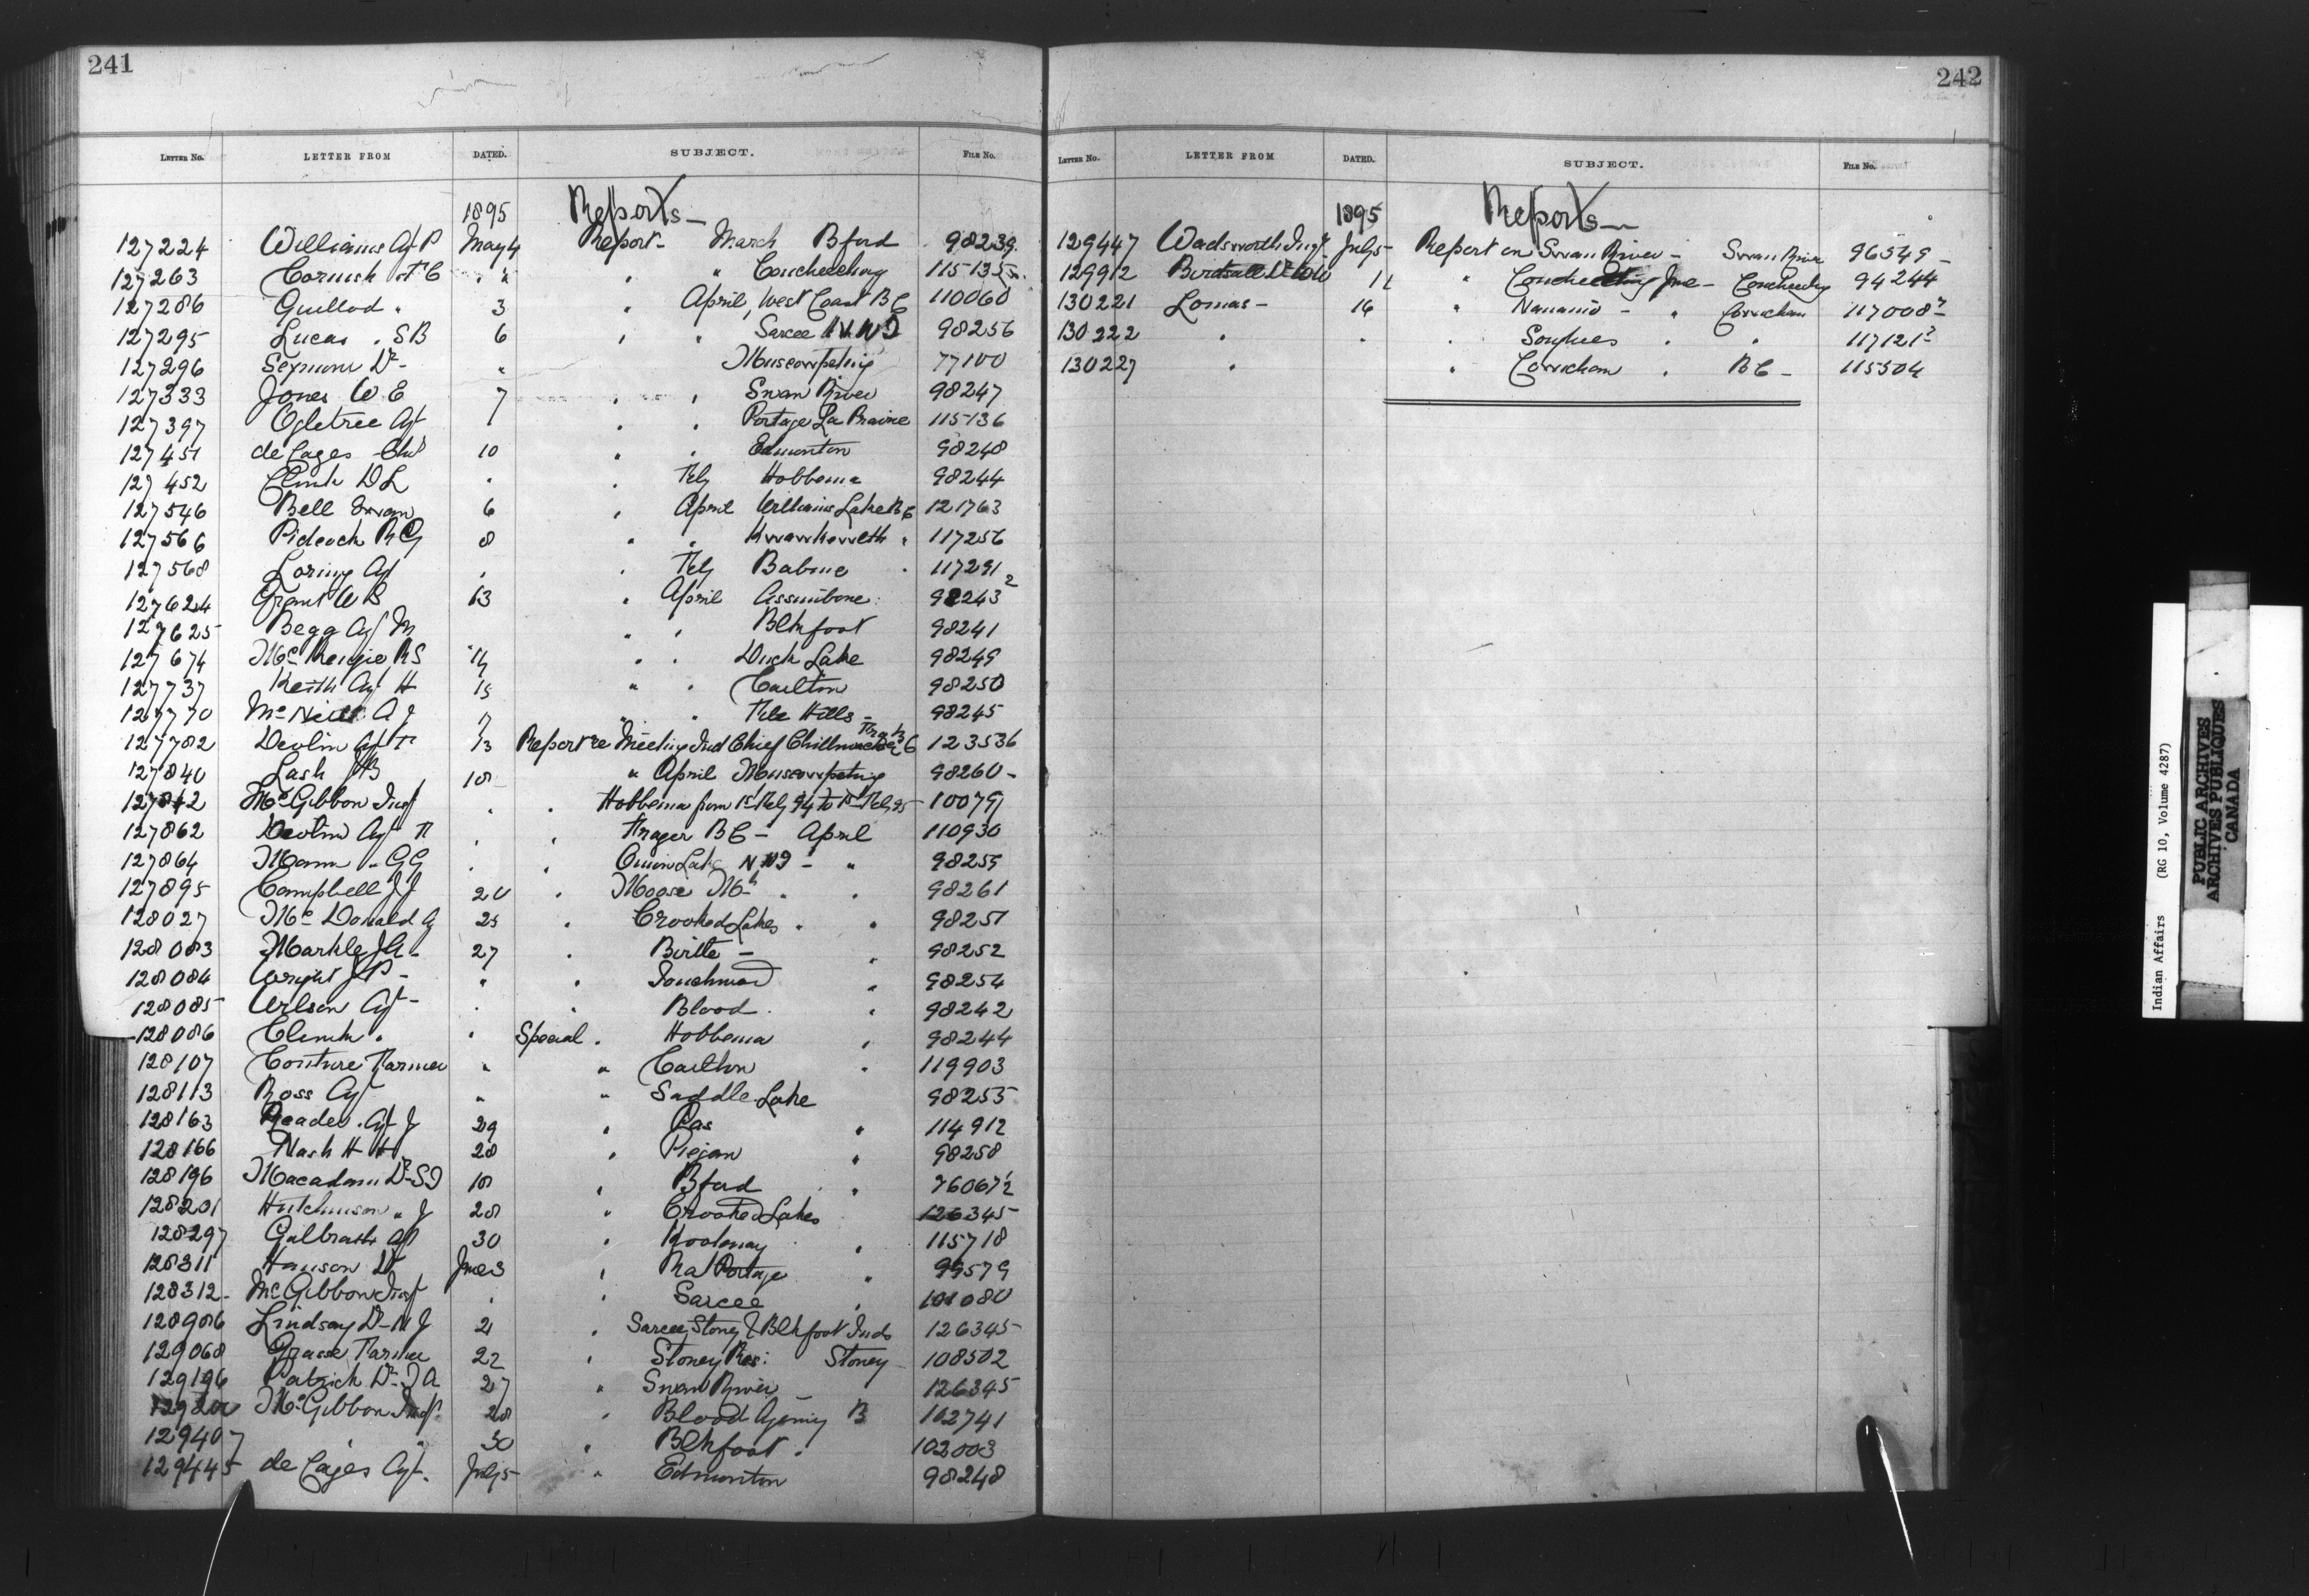 241
LETTER NO. LETTER FROM DATED. SUBJECT. FILE NO.
1895 Reports—
127224 Williams Agt P May 4 Report - March Bford 98239
127263 Cornish A C " " " " Couchiching 115135
127286 Guillod " 3 " April, West Coast B C 110060
127295 Lucas " S B 6 " " Sarcee N.W.T 98256
127296 Seymour Dr - " Muscowpetung 77100
127333 Jones W E 7 " " Swan River 98247
127397 Ogletree Agt " " Portage La Prairie 115136
127451 de Cages Chs 10 " " Edmonton 98248
127452 Clink D L " " Feby Hobbema 98244
127546 Bell Ewan 6 " April Williams Lake B C 121763
127566 Pidcock R G 8 " " Kwawkewlth " 117256
127568 Loring Agt " " Feby Babine " 117291
127624 Grant W S 13 " April Assinibone 98243
127625 Begg Agt M " " Blkfoot 98241
127674 McKenzie R S 14 " " Duck Lake 98249
127737 Keith Agt H 15 " " Carlton 98250
127770 McNeill A J 17 " " File Hills - 98245
127782 Devlin Agt F 13 Report re Meeting Ind Chief Chillwack B C 123536
127840 Lash J B 18 " April Muscowpetung 98260 -
127842 McGibbon Insp " " Hobbema from 1st Feby 94 to 1st Feby 95 - 10079
127862 Devlin Agt F " " Fraser B C - April 110930
127864 Mann " G G " " Onion Lake N.W.T - " 98255
127895 Campbell J J 20 " Moose Mt " " 98261
128027 McDonald A 25 " Crooked Lakes " " 98251
128083 Markle J A - 27 " Birtle - " 98252
128084 Wright J P - " " Touchwood " 98254
128085 Wilson Agt - " " Blood " 98242
128086 Clink " " Special " Hobbema " 98244
128107 Couture Farmer " " Carlton " 119903
128113 Ross Agt " " Saddle Lake 98255
128163 Reader " Agt J 29 " Pas " 114912
128166 Nash H H 28 " Piegan " 98258
128196 Macadam Dr S T 18 " Bford " 76067½
128201 Hutchinson " J 28 " Crooked Lakes 126345
128297 Galbraith Agt 30 " Kootenay " 115718
128311 Hanson Dr June 3 " Rat Portage " 99579
128312 - McGibbon Insp " " Sarcee " 101080
128906 Lindsay Dr - N J 21 " Sarcee, Stoney & Blkfoot Inds 126345
129068 Grasse Farmer 22 " Stoney Res: Stoney 108502
129196 Patrick Dr - T A 27 " Swan River 126345
McGibbon Insp 28 " Blood Agency 102741
129407 " " 30 " Blkfoot " 102003
129445 de Cages Agt - July 5 " Edmonton 98248
242
LETTER NO. LETTER FROM DATED. SUBJECT. FILE NO.
1895 Reports—
129447 Wadsworth Insp July 5 Report on Swan River - Swan River 96549 -
129912 Birdsall Dr 11 " Couchiching June - Couchiching 94244
130221 Lomas - 16 " Nanaimo - " Cowichan 117008
130222 " " " Songhees " " 117121
130227 " " Cowichan " B C - 115504
Indian Affairs (RG 10, Volume 4287)
PUBLIC ARCHIVES
ARCHIVES PUBLIQUES
CANADA